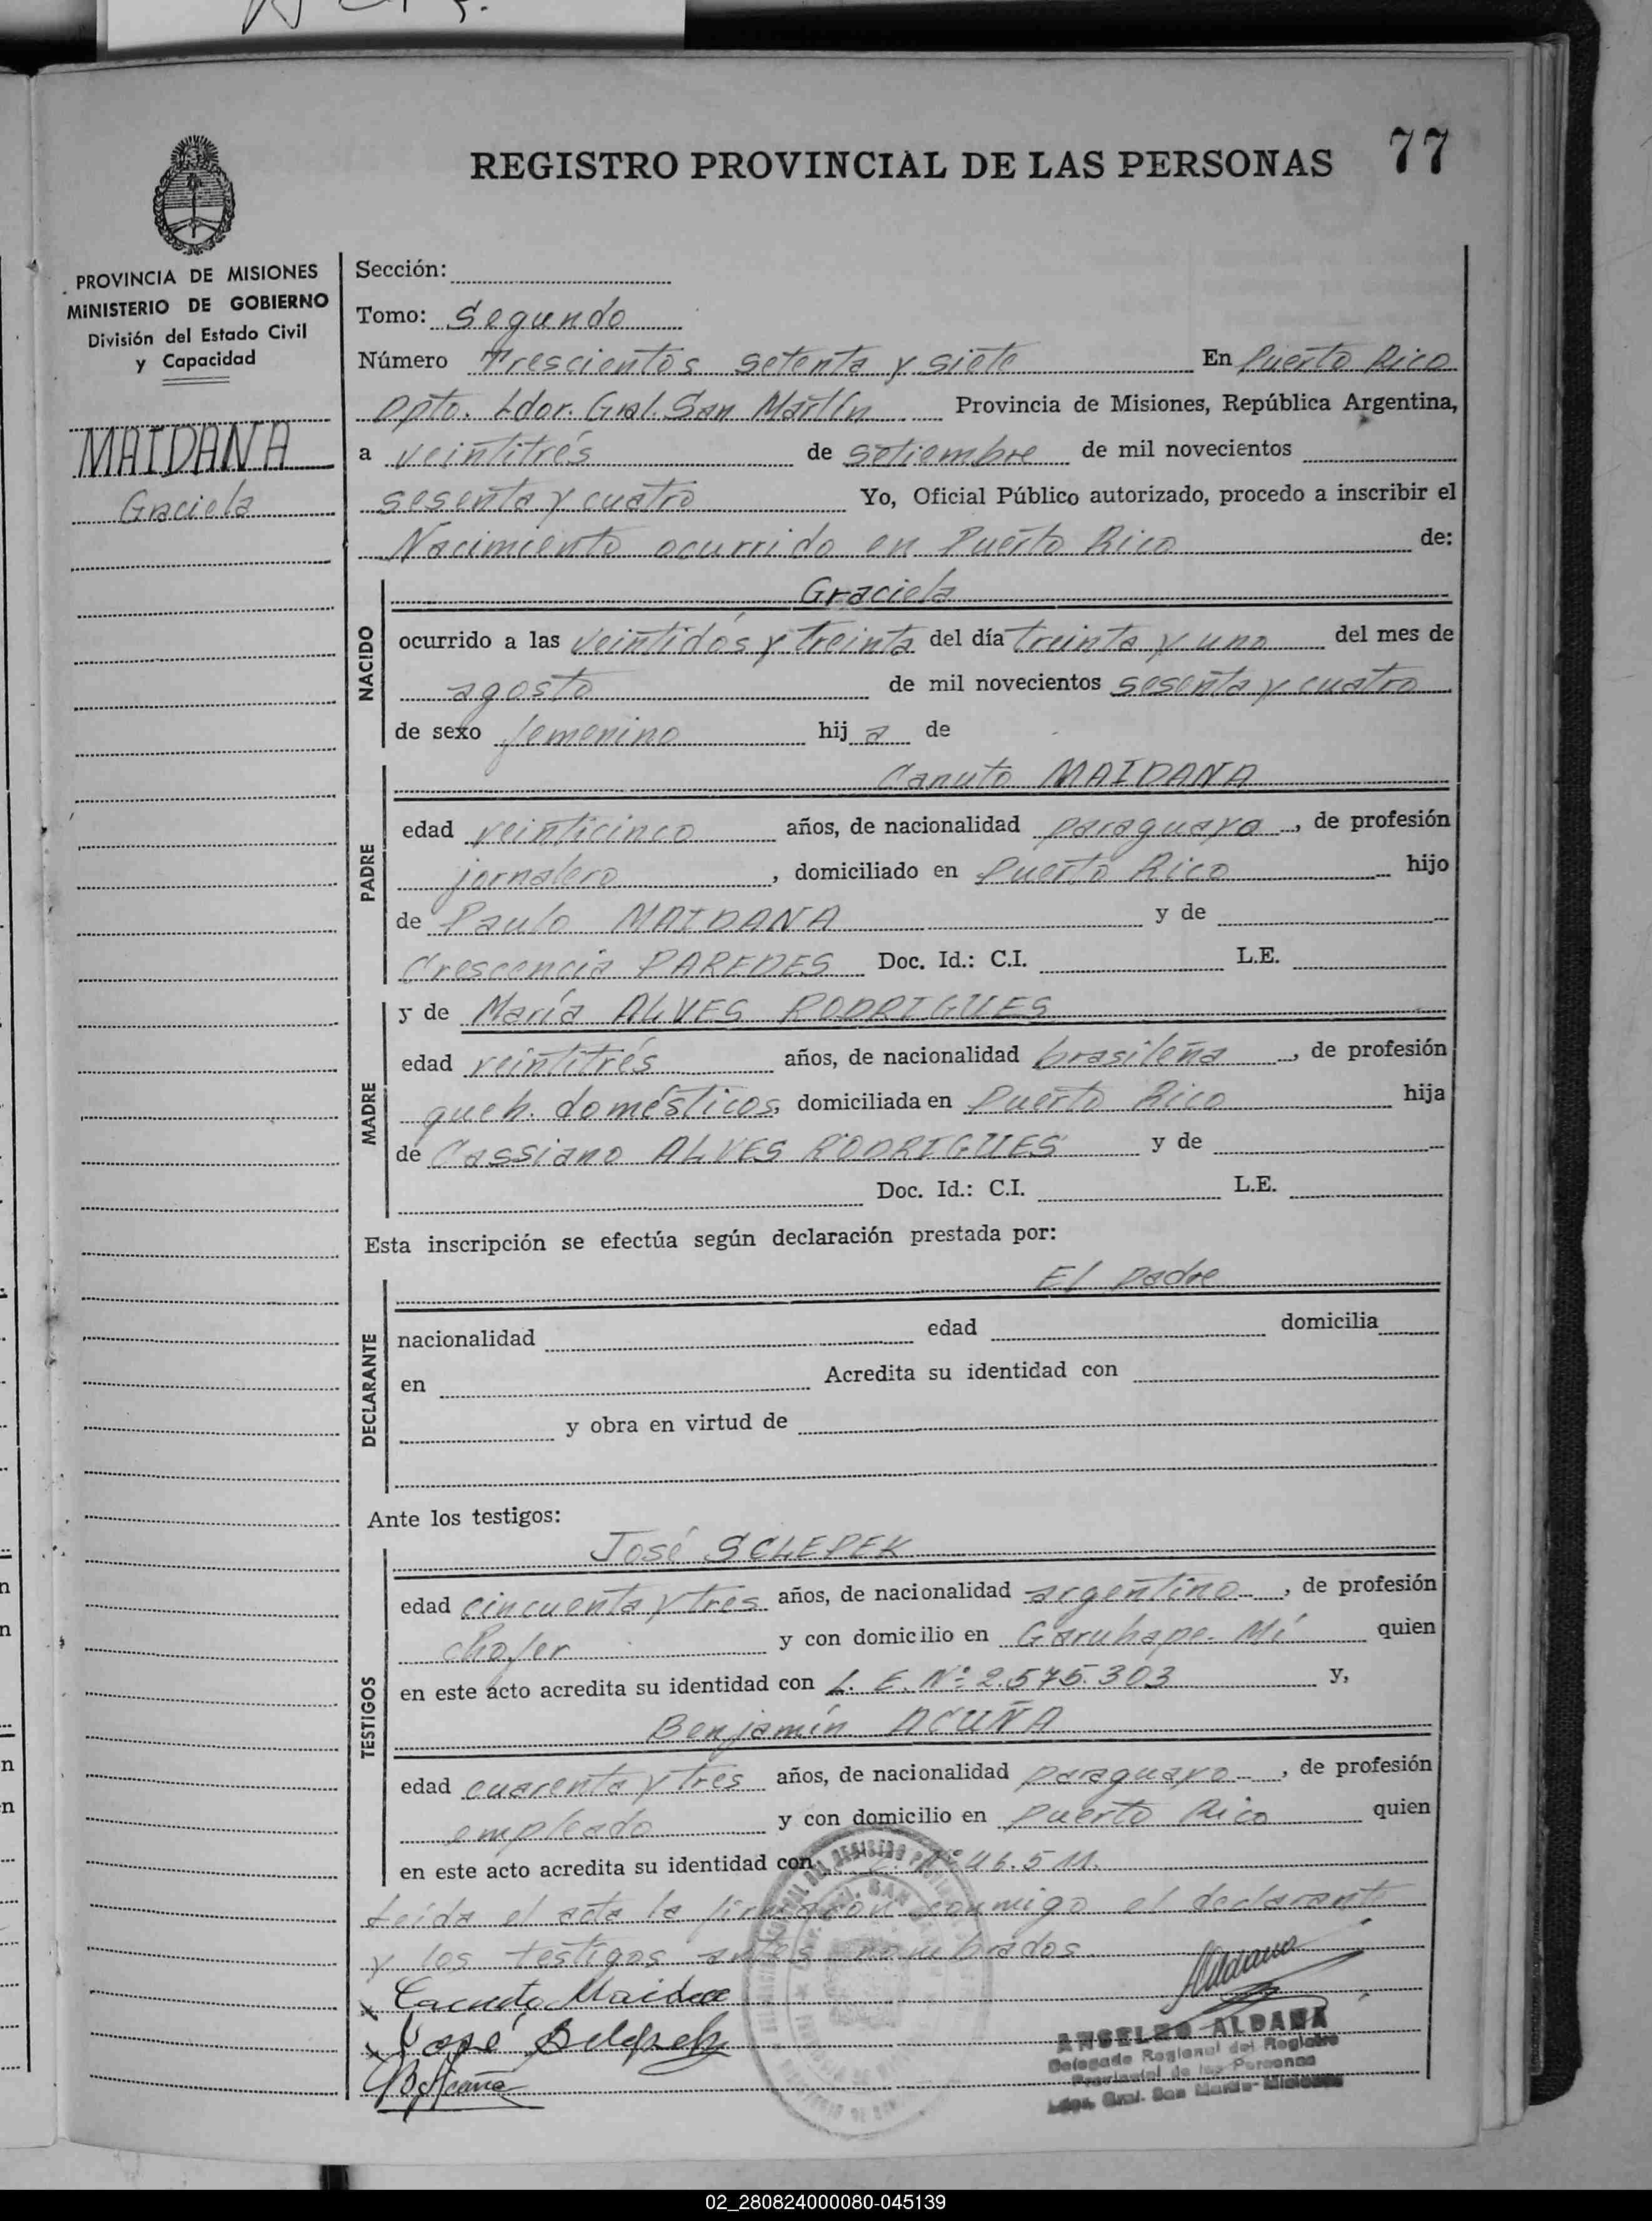 REGISTRO PROVINCIAL DE LAS PERSONAS 77
PROVINCIA DE MISIONES
MINISTERIO DE GOBIERNO
División del Estado Civil
y Capacidad
MAIDANA
Graciela
Sección:
Tomo: Segundo
Número Trescientos setenta y siete En Puerto Rico
Dpto. Ldor. Gral. San Martín Provincia de Misiones, República Argentina,
a veintitrés de setiembre de mil novecientos
sesenta y cuatro Yo, Oficial Público autorizado, procedo a inscribir el
Nacimiento ocurrido en Puerto Rico de:
NACIDO
Graciela
ocurrido a las veintidós y treinta del día treinta y uno del mes de
agosto de mil novecientos sesenta y cuatro
de sexo femenino hij a de
PADRE
Canuto MAIDANA
edad veinticinco años, de nacionalidad paraguaya, de profesión
jornalero, domiciliado en Puerto Rico hijo
de Paulo MAIDANA y de
Crescencia PAREDES Doc. Id.: C.I. L.E.
MADRE
y de María ALVES RODRIGUES
edad veintitrés años, de nacionalidad brasileña, de profesión
queh. domésticos, domiciliada en Puerto Rico hija
de Cassiano ALVES RODRIGUES y de
Doc. Id.: C.I. L.E.
Esta inscripción se efectúa según declaración prestada por:
DECLARANTE
El padre
nacionalidad edad domicilia
en Acredita su identidad con
y obra en virtud de
Ante los testigos:
TESTIGOS
José SCLEPEK
edad cincuenta y tres años, de nacionalidad argentino, de profesión
chofer y con domicilio en Garuhape- Mí quien
en este acto acredita su identidad con L. E. Nº 2.575.303 y,
Benjamín ACUÑA
edad cuarenta y tres años, de nacionalidad paraguayo, de profesión
empleado y con domicilio en Puerto Rico quien
en este acto acredita su identidad con Nº 46.511.
Leída el acta la firmaron conmigo el declarante
y los testigos antes nombrados.
Canuto Maidana
José
BAcuña
Aldana
ANSELMO ALDANA
Delegado Regional del Registro
Provincial de las Personas
Ldor. Gral. San Martín - Misiones
02_280824000080-045139